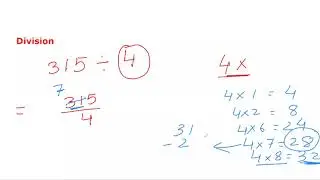 Division
315 ÷ 4
7
= 315
4
4 ×
4 × 1 = 4
4 × 2 = 8
4 × 6 = 24
4 × 7 = 28
4 × 8 = 32
31
- 2